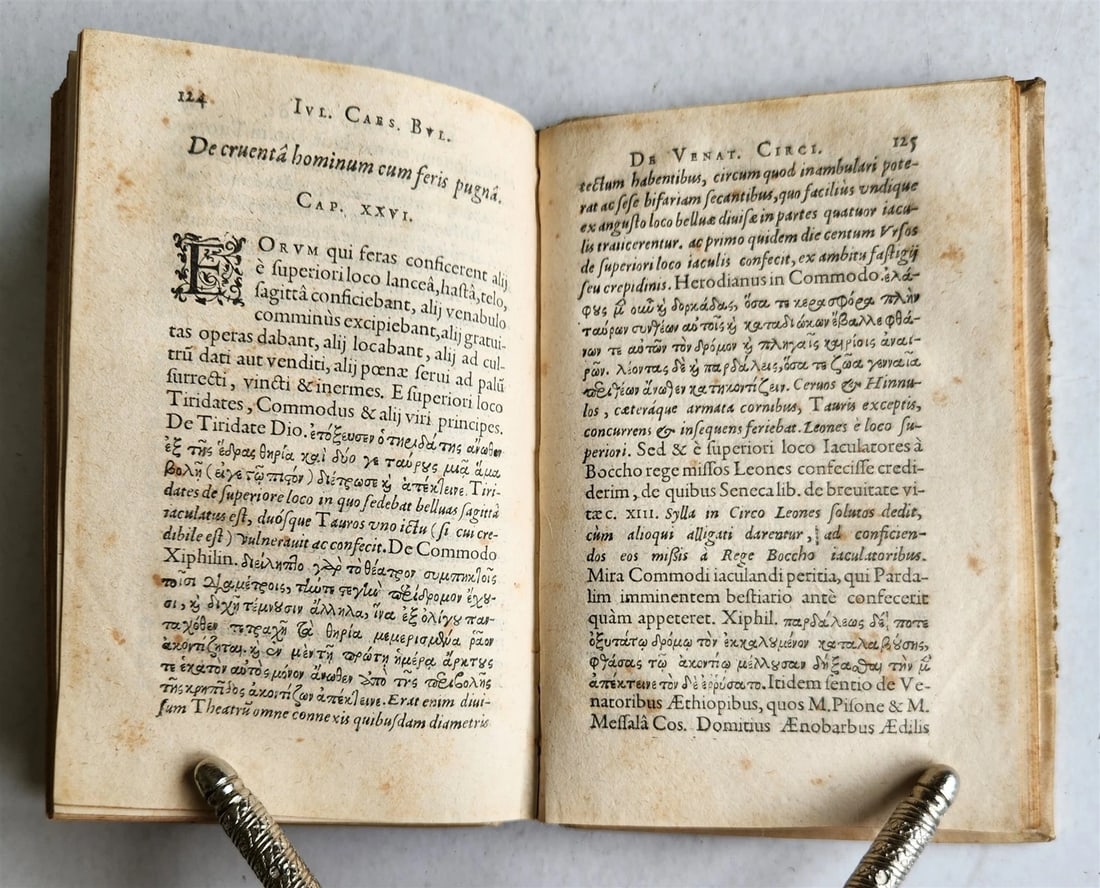 124
IVL. CAES. BVL.
De cruentâ hominum cum feris pugnâ.
CAP. XXVI.
EORVM qui feras conficerent alij
è superiori loco lanceâ, hastâ, telo,
sagittâ conficiebant, alij venabulo
comminùs excipiebant, alij gratui-
tas operas dabant, alij locabant, alij ad cul-
trũ dati aut venditi, alij pœnæ serui ad palũ
surrecti, vincti & inermes. E superiori loco
Tiridates, Commodus & alij viri principes.
De Tiridate Dio. ἐτόξευσεν ὁ τηριδάτης ἄνωθεν
ἐξ τῆς ἕδρας θηρία καὶ δύο γε ταύρȣς μιᾷ ἅμα
βολῇ (εἴγε τῷ πιςὸν) διέτρωσε κ̀ ἀπέκτεινε. Tiri-
dates de superiore loco in quo sedebat belluas sagittâ
iaculatus est, duósque Tauros vno ictu (si cui cre-
dibile est) vulnerauit ac confecit. De Commodo
Xiphilin. διείληπτο γὰρ τὸ θέατρον συμπηκτοῖς
τισι διαμέτροις, τήν τε ςέγην περίδρομον ἔχȣ-
σι, κ̀ διχῆ τέμνυσιν ἄλληλα, ἵνα ἐξ ὀλίγȣ παν-
ταχόθεν τετραχῆ τὰ θηρία μεμερισμένα ῥᾷον
ἀκοντίζηται. κ̀ ἐν μὲν τῇ πρώτῃ ἡμέρᾳ ἄρκτȣς
τε ἑκατὸν αὐτὸς μόνον ἄνωθεν ἀπὸ τῆς περιβολῆς
τῆς κρηπῖδος ἀκοντίζων ἀπέκτεινε. Erat enim diui-
sum Theatrũ omne connexis quibusdam diametris
DE VENAT. CIRCI.
125
tectum habentibus, circum quod inambulari pote-
rat ac sese bifariam secantibus, quo faciliùs vndique
ex angusto loco belluæ diuisæ in partes quatuor iacu-
lis traiicerentur. ac primo quidem die centum Vrsos
de superiori loco iaculis confecit, ex ambitu fastigij
seu crepidinis. Herodianus in Commodo. ἐλά-
φȣς μ̃ οὖν κ̀ δορκάδας, ὅσα τε κερασφόρα πλὴν
ταύρων συνθέων αὐτοῖς κ̀ καταδιώκων ἔβαλλε φθά-
νων τε αὐτῶν τὸν δρόμον κ̀ πληγαῖς καιρίοις ἀναι-
ρῶν. λέοντας δὲ κ̀ παρδάλεις, ὅσα τε ζῶα γενναῖα
περιθέων ἄνωθεν κατηκόντιζεν. Ceruos & Hinnu-
los, cæteráque armata cornibus, Tauris exceptis,
concurrens & insequens feriebat. Leones è loco su-
periori. Sed & è superiori loco Iaculatores à
Boccho rege missos Leones confecisse credi-
derim, de quibus Seneca lib. de breuitate vi-
tæ c. XIII. Sylla in Circo Leones solutos dedit,
cùm alioqui alligati darentur, ad conficien-
dos eos missis à Rege Boccho iaculatoribus.
Mira Commodi iaculandi peritia, qui Parda-
lim imminentem bestiario antè confecerit
quàm appeteret. Xiphil. παρδάλεως δέ ποτε
ὀξυτάτῳ δρόμῳ τὸν ἐκκαλȣ́μενον καταλαβȣ́σης,
φθάσας τῷ ἀκοντίῳ μέλλȣσαν δήξασθαι τὴν μ̃
ἀπέκτεινε τὸν δὲ ἐρρύσατο. Itidem sentio de Ve-
natoribus Æthiopibus, quos M. Pisone & M.
Messalâ Cos. Domitius Ænobarbus Ædilis